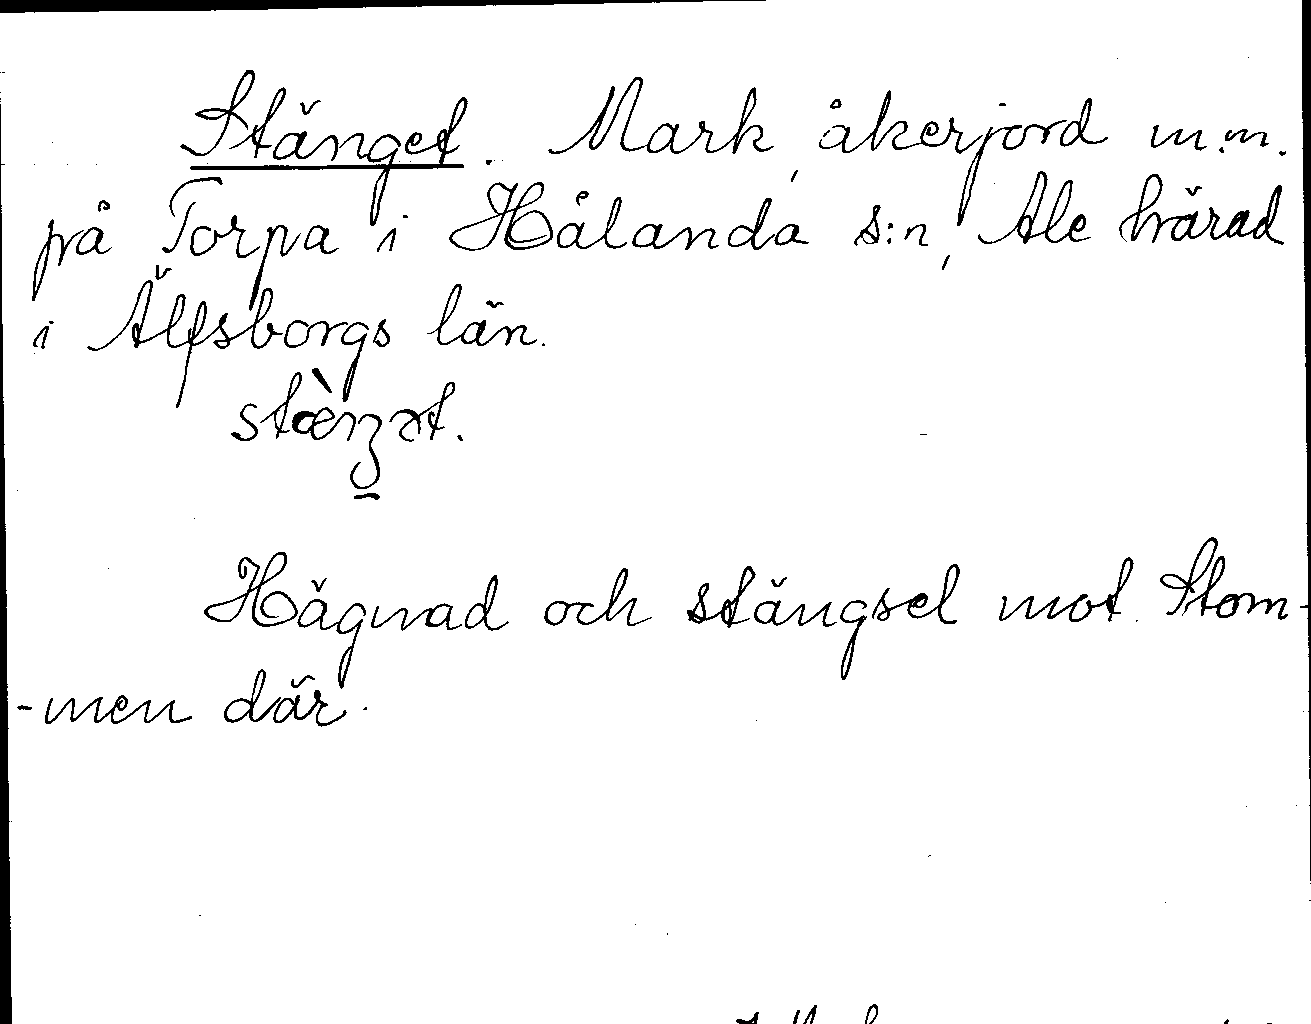 Stänget. Mark, åkerjord m.m.
på Torpa i Hålanda s:n, Ale härad
i Älfsborgs län.
stæ̀ŋət.
Hägnad och stängsel mot Stom-
-men där.